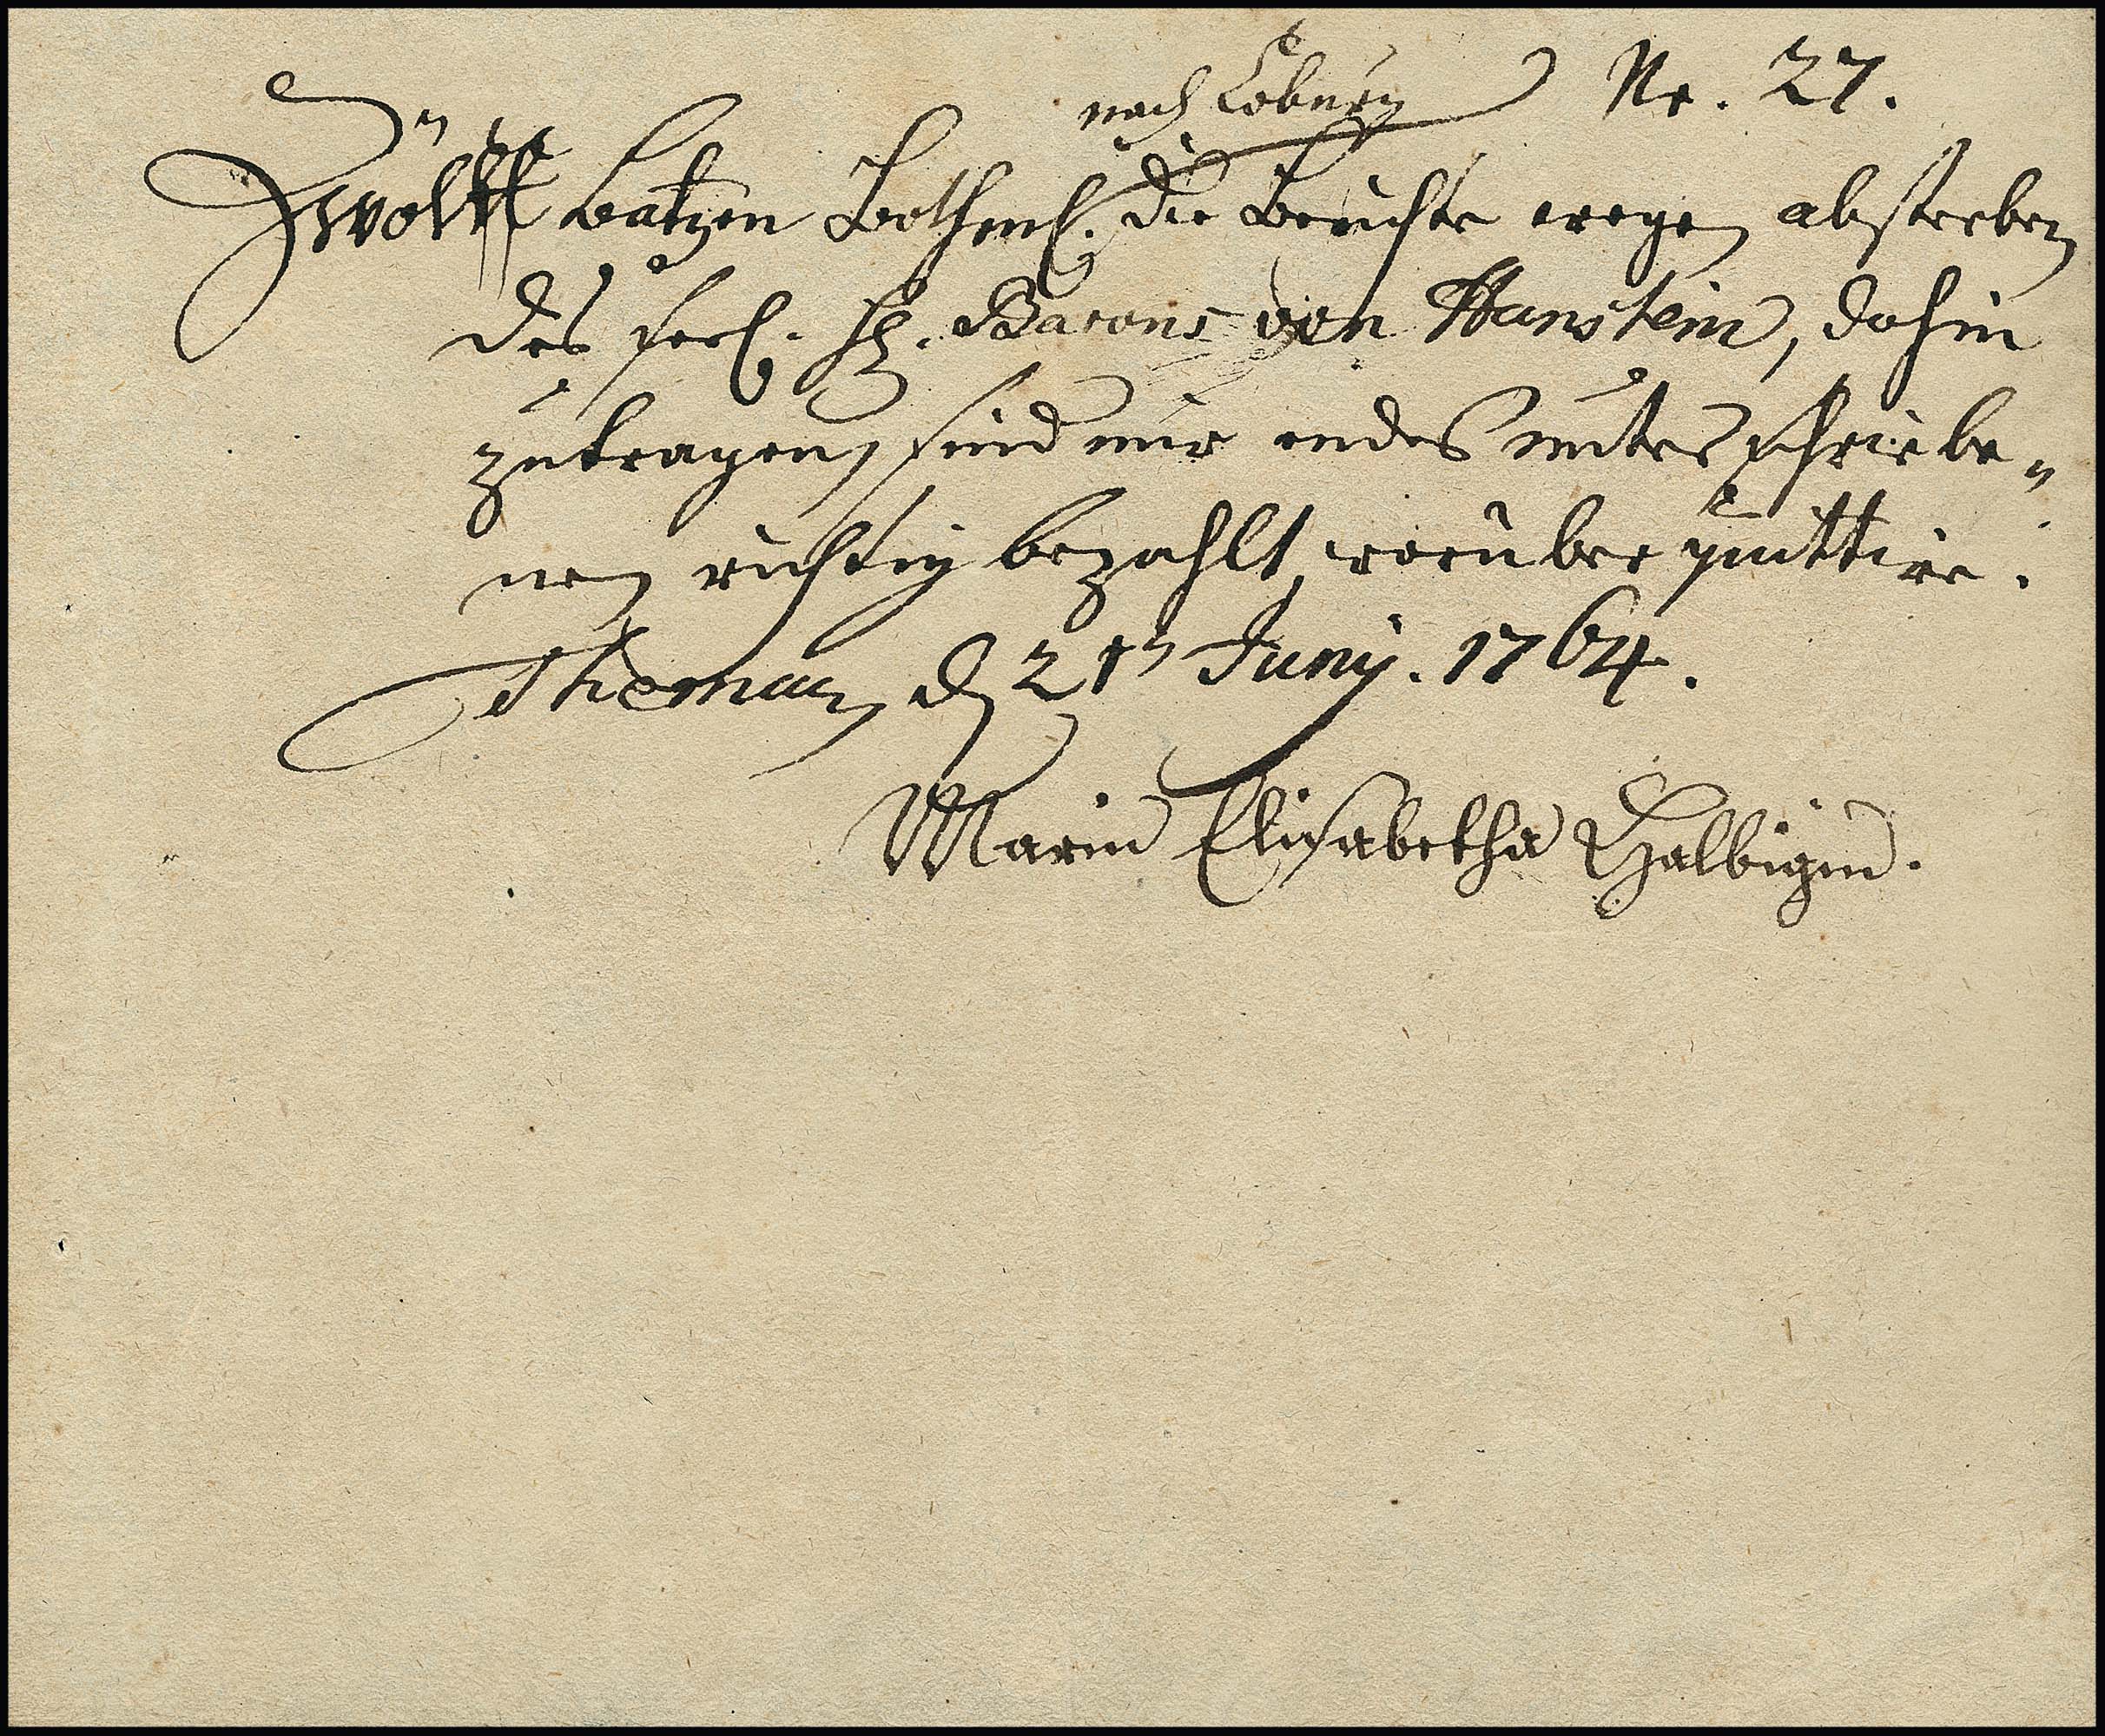 nach Coburg Nr. 27.
Zwölff Batzen Bothenl. die Berichte wegen absterben
des seel. H. Barons von Hanstein, dahin
zutragen, sind mir endes unterschriebe„
nen richtig bezahlt, worüber quittire.
Themar, d 21n Junij. 1764.
Maria Elisabetha Halbigin.